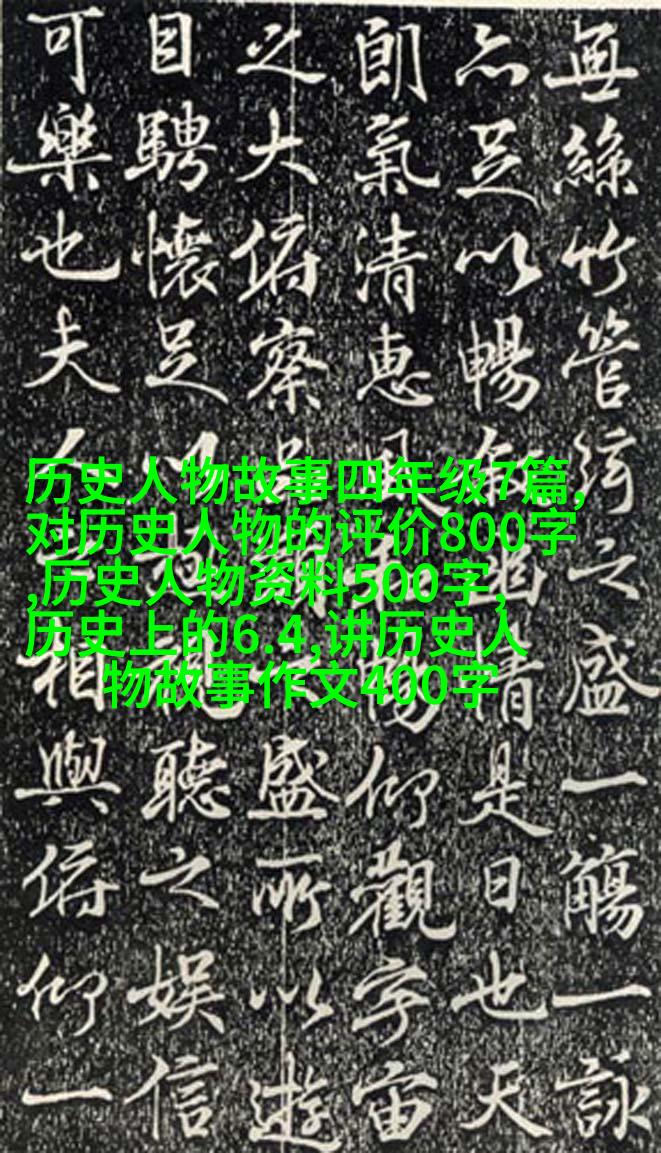 無絲竹管絃之盛一觴一詠
亦足以暢叙幽情是日也天
朗氣清惠風和暢仰觀宇宙
之大俯察品類之盛所以遊
目騁懷足以極視聽之娛信
可樂也夫人之相與俯仰一
历史人物故事四年级7篇,
对历史人物的评价800字
,历史人物资料500字,
历史上的6.4,讲历史人
物故事作文400字